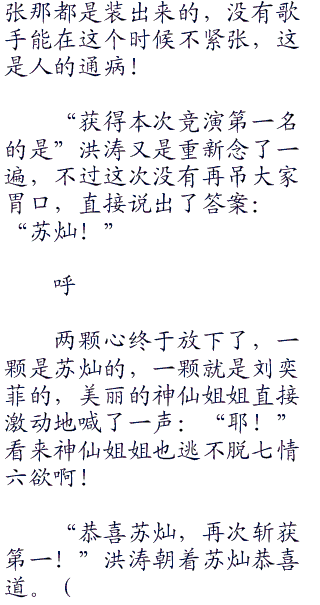 张那都是装出来的，没有歌
手能在这个时候不紧张，这
是人的通病！
“获得本次竞演第一名
的是”洪涛又是重新念了一
遍，不过这次没有再吊大家
胃口，直接说出了答案：
“苏灿！”
呼
两颗心终于放下了，一
颗是苏灿的，一颗就是刘奕
菲的，美丽的神仙姐姐直接
激动地喊了一声：“耶！”
看来神仙姐姐也逃不脱七情
六欲啊！
“恭喜苏灿，再次斩获
第一！”洪涛朝着苏灿恭喜
道。（